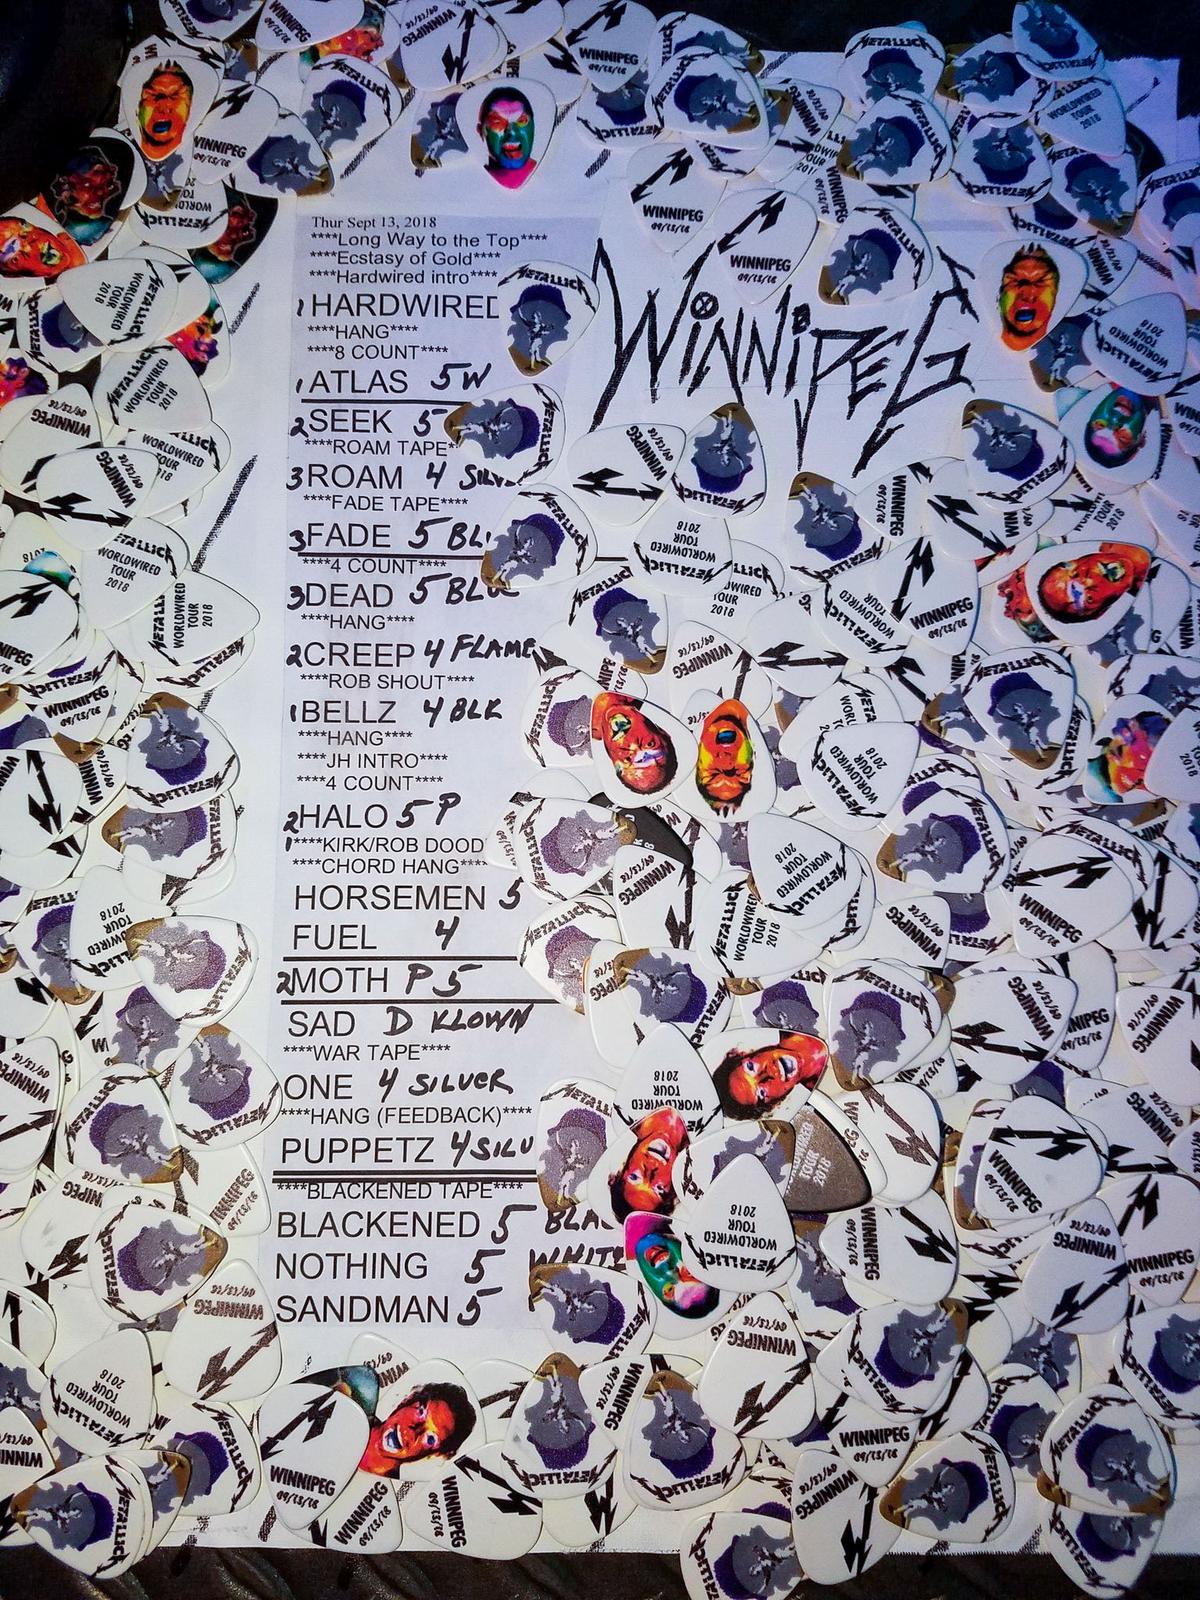 Thur Sept 13, 2018
****Long Way to the Top****
****Ecstasy of Gold****
****Hardwired intro****
1 HARDWIRED
****HANG****
****8 COUNT****
1 ATLAS 5W
2 SEEK 5
****ROAM TAPE****
3 ROAM 4
****FADE TAPE****
3 FADE 5
****4 COUNT****
3 DEAD 5
****HANG****
2 CREEP 4 FLAME
****ROB SHOUT****
1 BELLZ 4 BLK
****HANG****
****JH INTRO****
****4 COUNT****
2 HALO 5 P
****KIRK/ROB DOOD
****CHORD HANG****
HORSEMEN 5
FUEL 4
2 MOTH P 5
SAD D KLOWN
****WAR TAPE****
ONE 4 SILVER
****HANG (FEEDBACK)****
PUPPETZ 4 SILV
****BLACKENED TAPE****
BLACKENED 5
NOTHING 5 WHITE
SANDMAN 5
WINNIPEG
METALLICA
WORLDWIRED
TOUR
2018
WINNIPEG
09/13/18